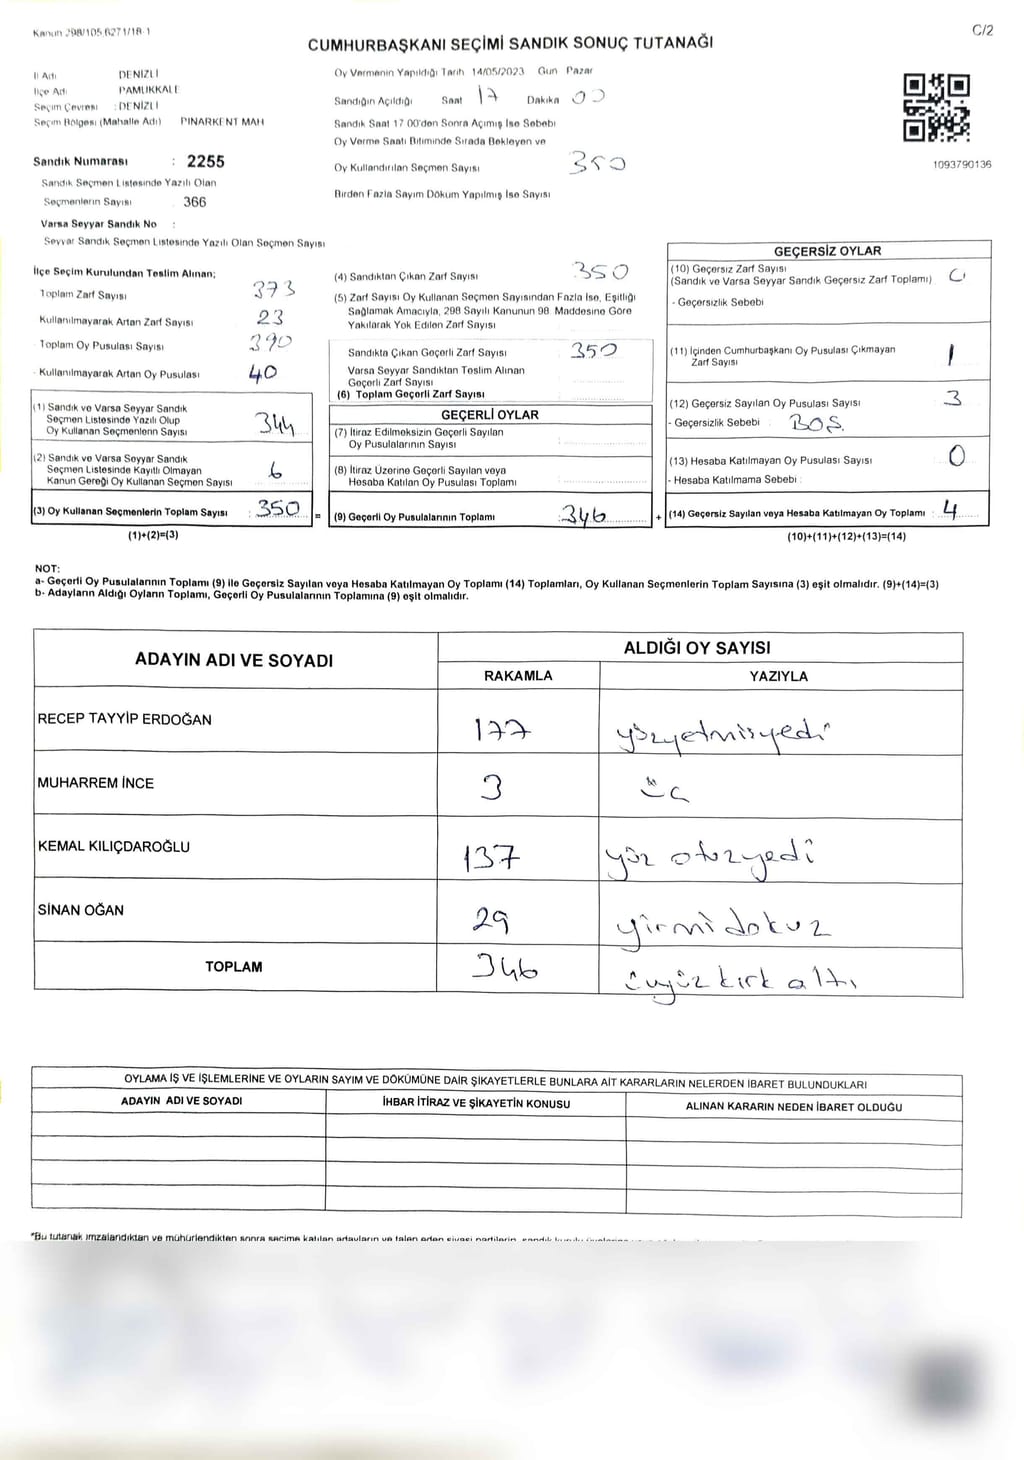 Kanun 298/105,6271/18-1
C/2
CUMHURBAŞKANI SEÇİMİ SANDIK SONUÇ TUTANAĞI
İl Adı DENİZLİ
İlçe Adı PAMUKKALE
Seçim Çevresi : DENİZLİ
Seçim Bölgesi (Mahalle Adı) PINARKENT MAH
Sandık Numarası : 2255
Sandık Seçmen Listesinde Yazılı Olan
Seçmenlerin Sayısı 366
Varsa Seyyar Sandık No :
Seyyar Sandık Seçmen Listesinde Yazılı Olan Seçmen Sayısı
Oy Vermenin Yapıldığı Tarih 14/05/2023 Gün Pazar
Sandığın Açıldığı Saat 17 Dakika 00
Sandık Saat 17 00'den Sonra Açımış İse Sebebi
Oy Verme Saati Bitiminde Sırada Bekleyen ve
Oy Kullandırılan Seçmen Sayısı 350
Birden Fazla Sayım Döküm Yapılmış İse Sayısı
1093790136
İlçe Seçim Kurulundan Teslim Alınan;
Toplam Zarf Sayısı 373
Kullanılmayarak Artan Zarf Sayısı 23
Toplam Oy Pusulası Sayısı 390
- Kullanılmayarak Artan Oy Pusulası 40
(1) Sandık ve Varsa Seyyar Sandık
Seçmen Listesinde Yazılı Olup
Oy Kullanan Seçmenlerin Sayısı 344
(2) Sandık ve Varsa Seyyar Sandık
Seçmen Listesinde Kayıtlı Olmayan
Kanun Gereği Oy Kullanan Seçmen Sayısı 6
(3) Oy Kullanan Seçmenlerin Toplam Sayısı : 350 =
(1)+(2)=(3)
(4) Sandıktan Çıkan Zarf Sayısı 350
(5) Zarf Sayısı Oy Kullanan Seçmen Sayısından Fazla İse, Eşitliği
Sağlamak Amacıyla, 298 Sayılı Kanunun 98 Maddesine Göre
Yakılarak Yok Edilen Zarf Sayısı
Sandıkta Çıkan Geçerli Zarf Sayısı 350
Varsa Seyyar Sandıktan Teslim Alınan
Geçerli Zarf Sayısı
(6) Toplam Geçerli Zarf Sayısı
GEÇERLİ OYLAR
(7) İtiraz Edilmeksizin Geçerli Sayılan
Oy Pusulalarının Sayısı
(8) İtiraz Üzerine Geçerli Sayılan veya
Hesaba Katılan Oy Pusulası Toplamı
(9) Geçerli Oy Pusulalarının Toplamı : 346 +
GEÇERSİZ OYLAR
(10) Geçersiz Zarf Sayısı
(Sandık ve Varsa Seyyar Sandık Geçersiz Zarf Toplamı) 0
- Geçersizlik Sebebi
(11) İçinden Cumhurbaşkanı Oy Pusulası Çıkmayan
Zarf Sayısı 1
(12) Geçersiz Sayılan Oy Pusulası Sayısı 3
- Geçersizlik Sebebi BOŞ.
(13) Hesaba Katılmayan Oy Pusulası Sayısı 0
- Hesaba Katılmama Sebebi :
(14) Geçersiz Sayılan veya Hesaba Katılmayan Oy Toplamı : 4
(10)+(11)+(12)+(13)=(14)
NOT:
a- Geçerli Oy Pusulalarının Toplamı (9) ile Geçersiz Sayılan veya Hesaba Katılmayan Oy Toplamı (14) Toplamları, Oy Kullanan Seçmenlerin Toplam Sayısına (3) eşit olmalıdır. (9)+(14)=(3)
b- Adayların Aldığı Oyların Toplamı, Geçerli Oy Pusulalarının Toplamına (9) eşit olmalıdır.
ADAYIN ADI VE SOYADI
ALDIĞI OY SAYISI
RAKAMLA YAZIYLA
RECEP TAYYİP ERDOĞAN 177 yüzyetmişyedi
MUHARREM İNCE 3 üç
KEMAL KILIÇDAROĞLU 137 yüz otuzyedi
SİNAN OĞAN 29 yirmi dokuz
TOPLAM 346 üçyüz kırk altı
OYLAMA İŞ VE İŞLEMLERİNE VE OYLARIN SAYIM VE DÖKÜMÜNE DAİR ŞİKAYETLERLE BUNLARA AİT KARARLARIN NELERDEN İBARET BULUNDUKLARI
ADAYIN ADI VE SOYADI İHBAR İTİRAZ VE ŞİKAYETİN KONUSU ALINAN KARARIN NEDEN İBARET OLDUĞU
*Bu tutanak imzalandıktan ve mühürlendikten sonra seçime katılan adayların ve talep eden siyasi partilerin